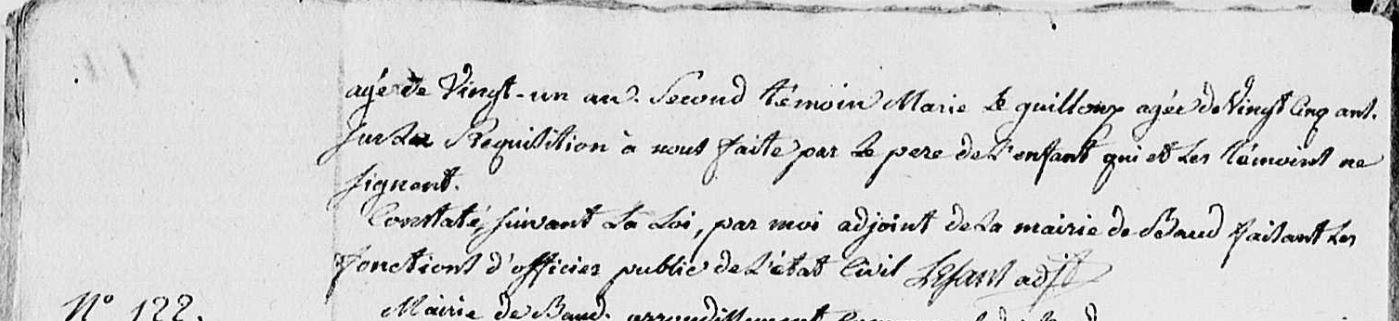 agé de Vingt-un an. Second témoin Marie Le guilloux agée de Vingt Cinq ans.
Sur La Requisition à nous faite par Le pere de L'enfant qui et Les témoins ne
signent.
Constaté, suivant La Loi, par moi adjoint de La mairie de Baud faisant Les
fonctions d'officier public de L'état Civil adjt
N° 122.
Mairie de Baud. arrondissement